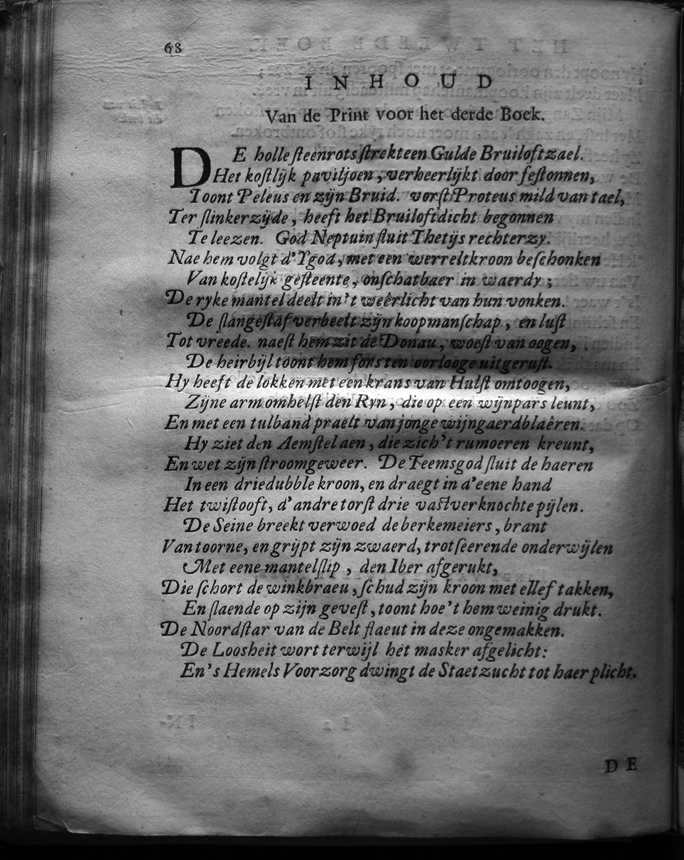 68
INHOUD
Van de Print voor het derde Boek.
DE holle ſteenrots ſtrekt een Gulde Bruiloftzael.
Het koſtlijk paviljoen, verheerlijkt door feſtonnen,
Toont Peleus en zijn Bruid. vorſt Proteus mild van tael,
Ter ſlinkerzijde, heeft het Bruiloftdicht begonnen
Te leezen. God Neptuin ſluit Thetijs rechterzy.
Nae hem volgt d'Ygod, met een werreltkroon beſchonken
Van koſtelijk geſteente, onſchatbaer in waerdy;
De ryke mantel deelt in't weêrlicht van hun vonken.
De ſlangeſtaf verbeelt zijn koopmanſchap, en luſt
Tot vreede. naeſt hem zit de Donau, woeſt van oogen,
De heirbijl toont hem fors ten oorlooge uitgeruſt.
Hy heeft de lokken met een krans van Hulſt omtoogen,
Zijne arm omhelſt den Ryn, die op een wijnpars leunt,
En met een tulband praelt van jonge wijngaerdblaêren.
Hy ziet den Aemſtel aen, die zich't rumoeren kreunt,
En wet zijn ſtroomgeweer. De Teemsgod ſluit de haeren
In een driedubble kroon, en draegt in d'eene hand
Het twiſtooft, d'andre torſt drie vaſtverknochte pijlen.
De Seine breekt verwoed de berkemeiers, brant
Van toorne, en grijpt zijn zwaerd, trotſeerende onderwijlen
Met eene mantelſlip, den Iber afgerukt,
Die ſchort de winkbraeu, ſchud zijn kroon met ellef takken,
En ſlaende op zijn geveſt, toont hoe't hem weinig drukt.
De Noordſtar van de Belt flaeut in deze ongemakken.
De Loosheit wort terwijl het masker afgelicht:
En's Hemels Voorzorg dwingt de Staetzucht tot haer plicht.
DE